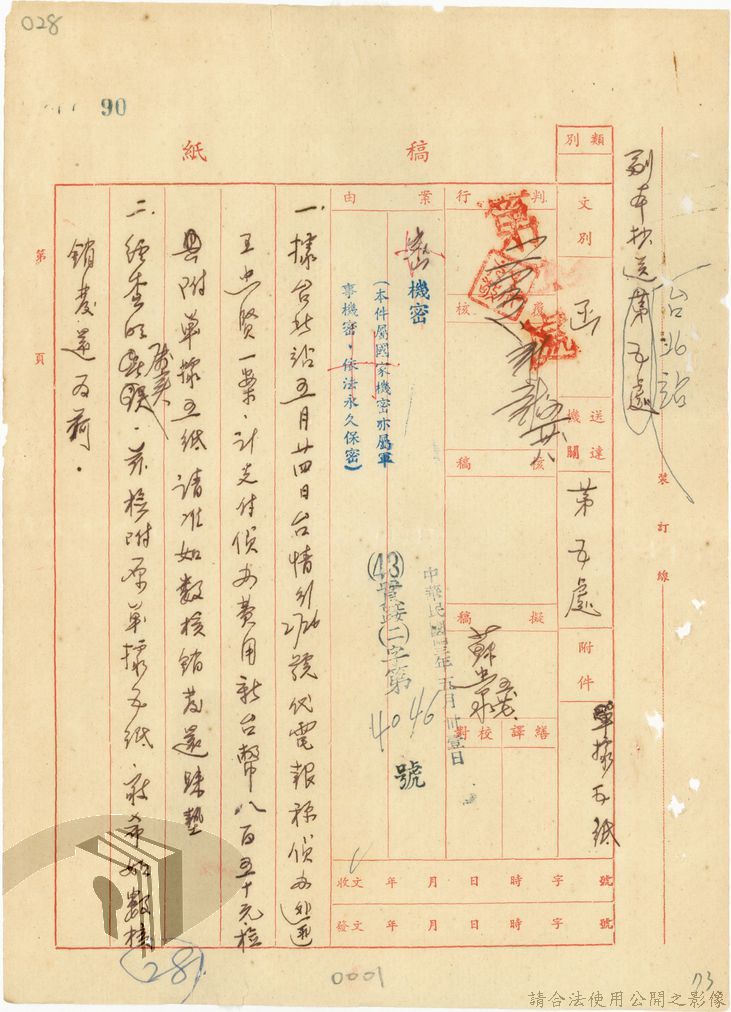 028
90
稿紙
副本抄送第五處
台北站
裝訂線
類別
文別
函
送達機關
第五處
附件
單據五紙
判行
覆核
核稿
擬稿
繕譯
校對
收文 年 月 日 時 字 號
發文 年 月 日 時 字 號
中華民國四三年五月卅壹日
字第4046號
案由
機密
(本件屬國家機密亦屬軍
事機密,依法永久保密)
一.據台北站五月廿四日台情引 號代電報称偵办匪
王忠賢一案.計支付偵办費用新台幣八百五十元.檢
具附單據五紙請准如数核銷發還歸墊
二.經查明屬實.茲檢附原單據五紙.敬希如數核
銷發還為荷.
第 頁
(28)
0001
73
請合法使用公開之影像